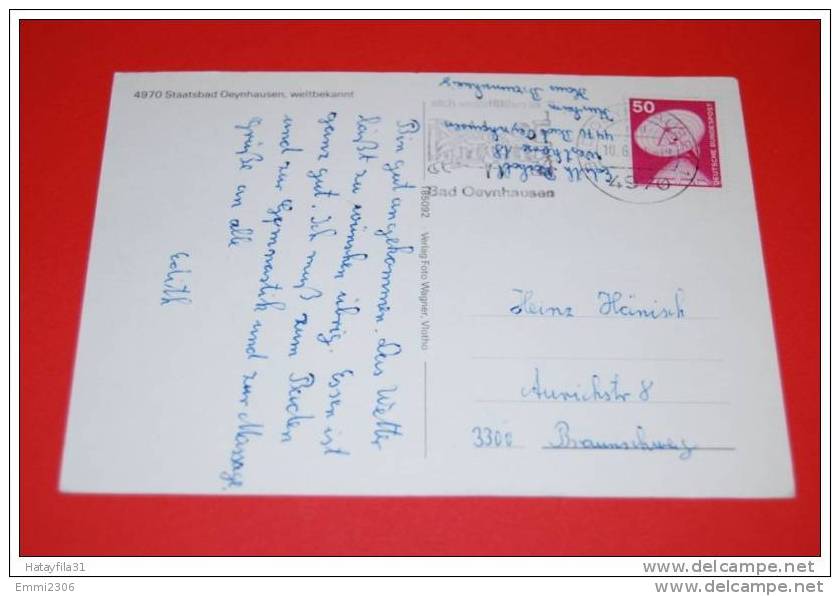 4970 Staatsbad Oeynhausen, weltbekannt
Bin gut angekommen. Das Wetter
läßt zu wünschen übrig. Essen ist
ganz gut. Ich muß zum Baden
und zur Gymnastik und zur Massage.
Grüße an alle
Edith
185092 Verlag Foto Wagner, Vlotho
Edith
Westkorso 18
4970 Bad Oeynhausen
Kurheim
Haus Braunschweig
Bad Oeynhausen
4970
50
DEUTSCHE BUNDESPOST
Heinz Hänisch
Aurichstr 8
3300 Braunschweig
Hatayfila31
Emmi2306
www.delcampe.net
www.delcampe.net